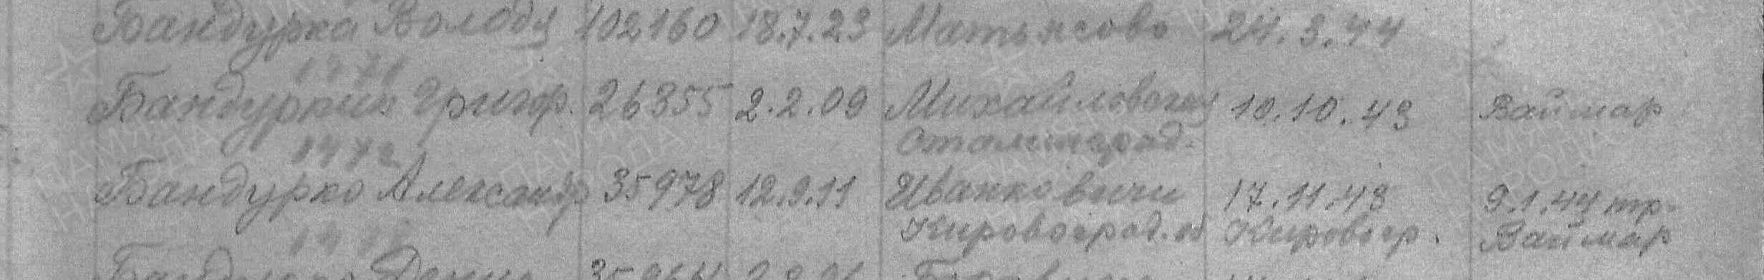 Бандурка Володя 102160 18.7.23 Матьясово 24.3.44
1471
Бандуркин Григор. 26355 2.2.09 Михайловская 10.10.43 Ваймар
Сталинград.
1472
Бандурко Александр 35978 12.9.11 Иванковичи 17.11.43 9.1.44 тр-
Кировоград. об Кировогр. Ваймар